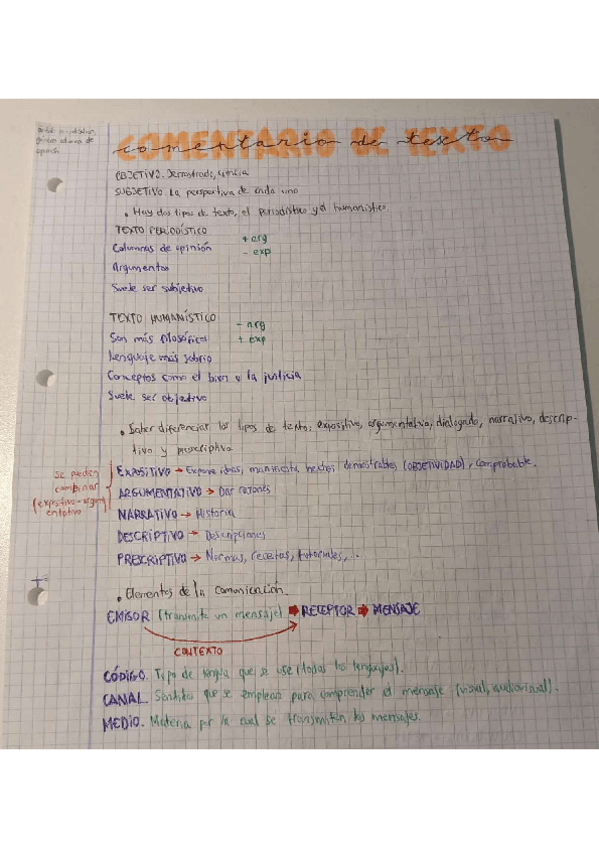 comentario de texto
OBJETIVO. Demostrado, ciencia
SUBJETIVO. La perspectiva de cada uno
• Hay dos tipos de texto, el periodístico y el humanístico
TEXTO PERIODÍSTICO
+ arg
Columnas de opinión
- exp
Argumentos
Suele ser subjetivo
TEXTO HUMANÍSTICO
- arg
Son más filosóficos
+ exp
Lenguaje más sobrio
Conceptos como el bien o la justicia
Suele ser objetivo
• Saber diferenciar los tipos de texto: expositivo, argumentativo, dialogado, narrativo, descrip-
tivo y prescriptivo
Se pueden
combinar
(expositivo-argum
entativo
EXPOSITIVO → Expone ideas, manifiesta hechos demostrables (OBJETIVIDAD), comprobable.
ARGUMENTATIVO → Dar razones
NARRATIVO → Historia
DESCRIPTIVO → Descripciones
PRESCRIPTIVO → Normas, recetas, tutoriales,...
• Elementos de la comunicación.
EMISOR (transmite un mensaje) → RECEPTOR → MENSAJE
CONTEXTO
CÓDIGO. Tipo de lengua que se use (todos los lenguajes).
CANAL. Sentidos que se emplean para comprender el mensaje (visual, audiovisual).
MEDIO. Materia por la cual se transmiten los mensajes.